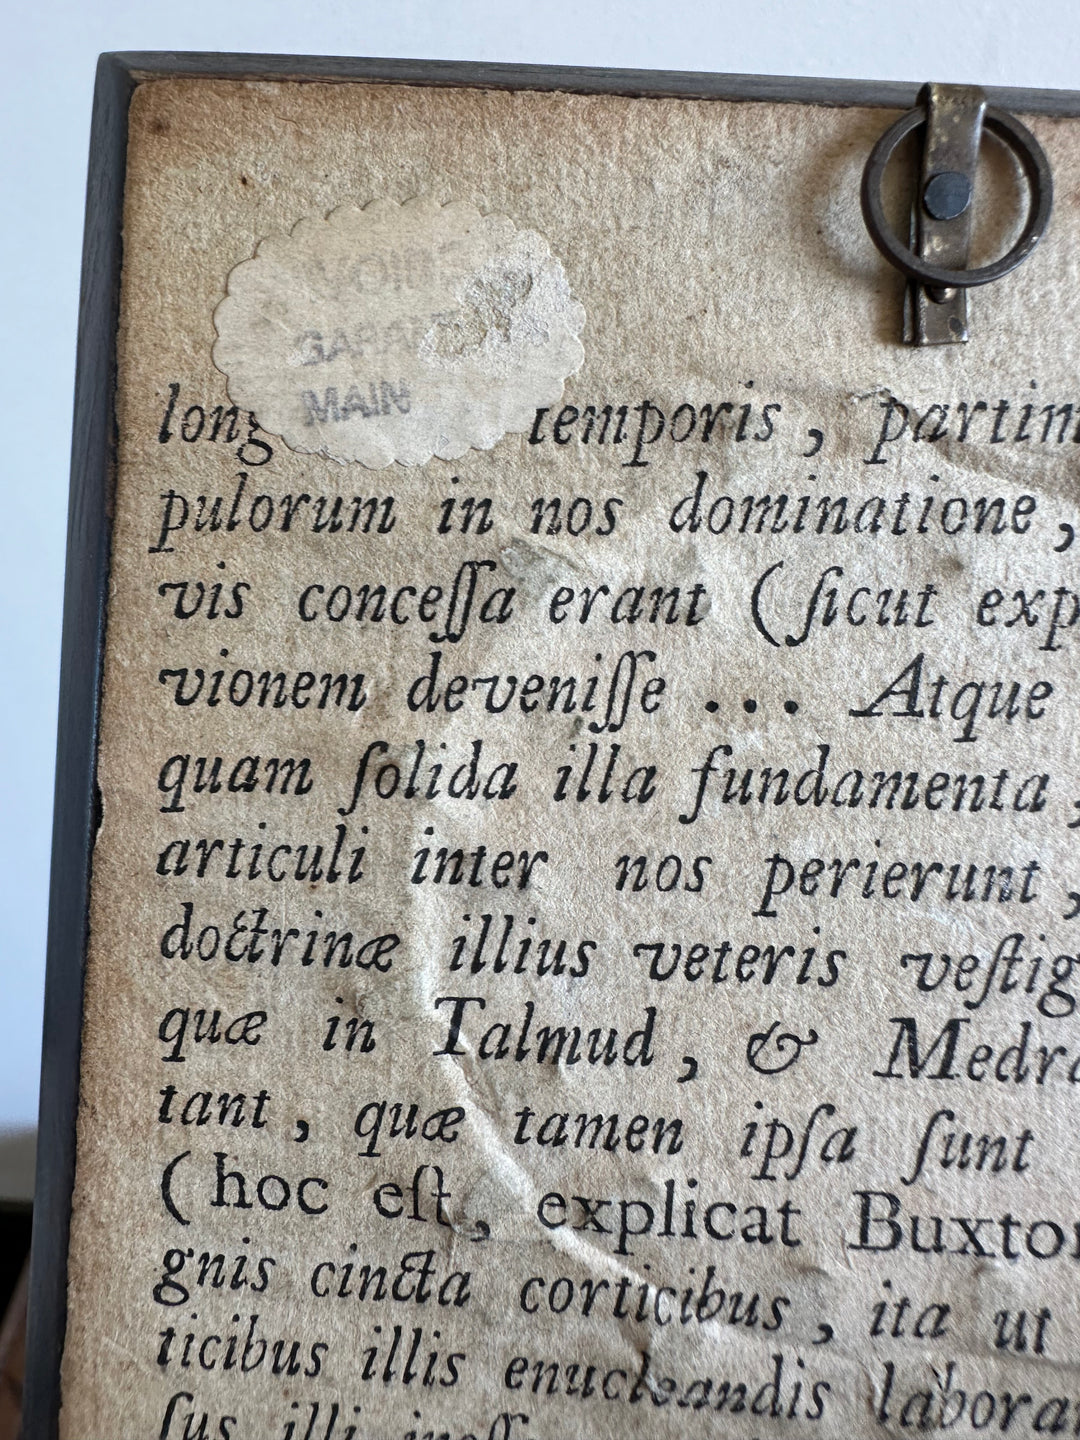 MAIN
temporis, partim
pulorum in nos dominatione,
vis conceſſa erant (ſicut exp
vionem deveniſſe ... Atque
quam ſolida illa fundamenta,
articuli inter nos perierunt,
doctrinæ illius veteris veſtig
quæ in Talmud, & Medra
tant, quæ tamen ipſa ſunt
(hoc eſt, explicat Buxtor
gnis cincta corticibus, ita ut
ticibus illis enucleandis labora
ſus illi